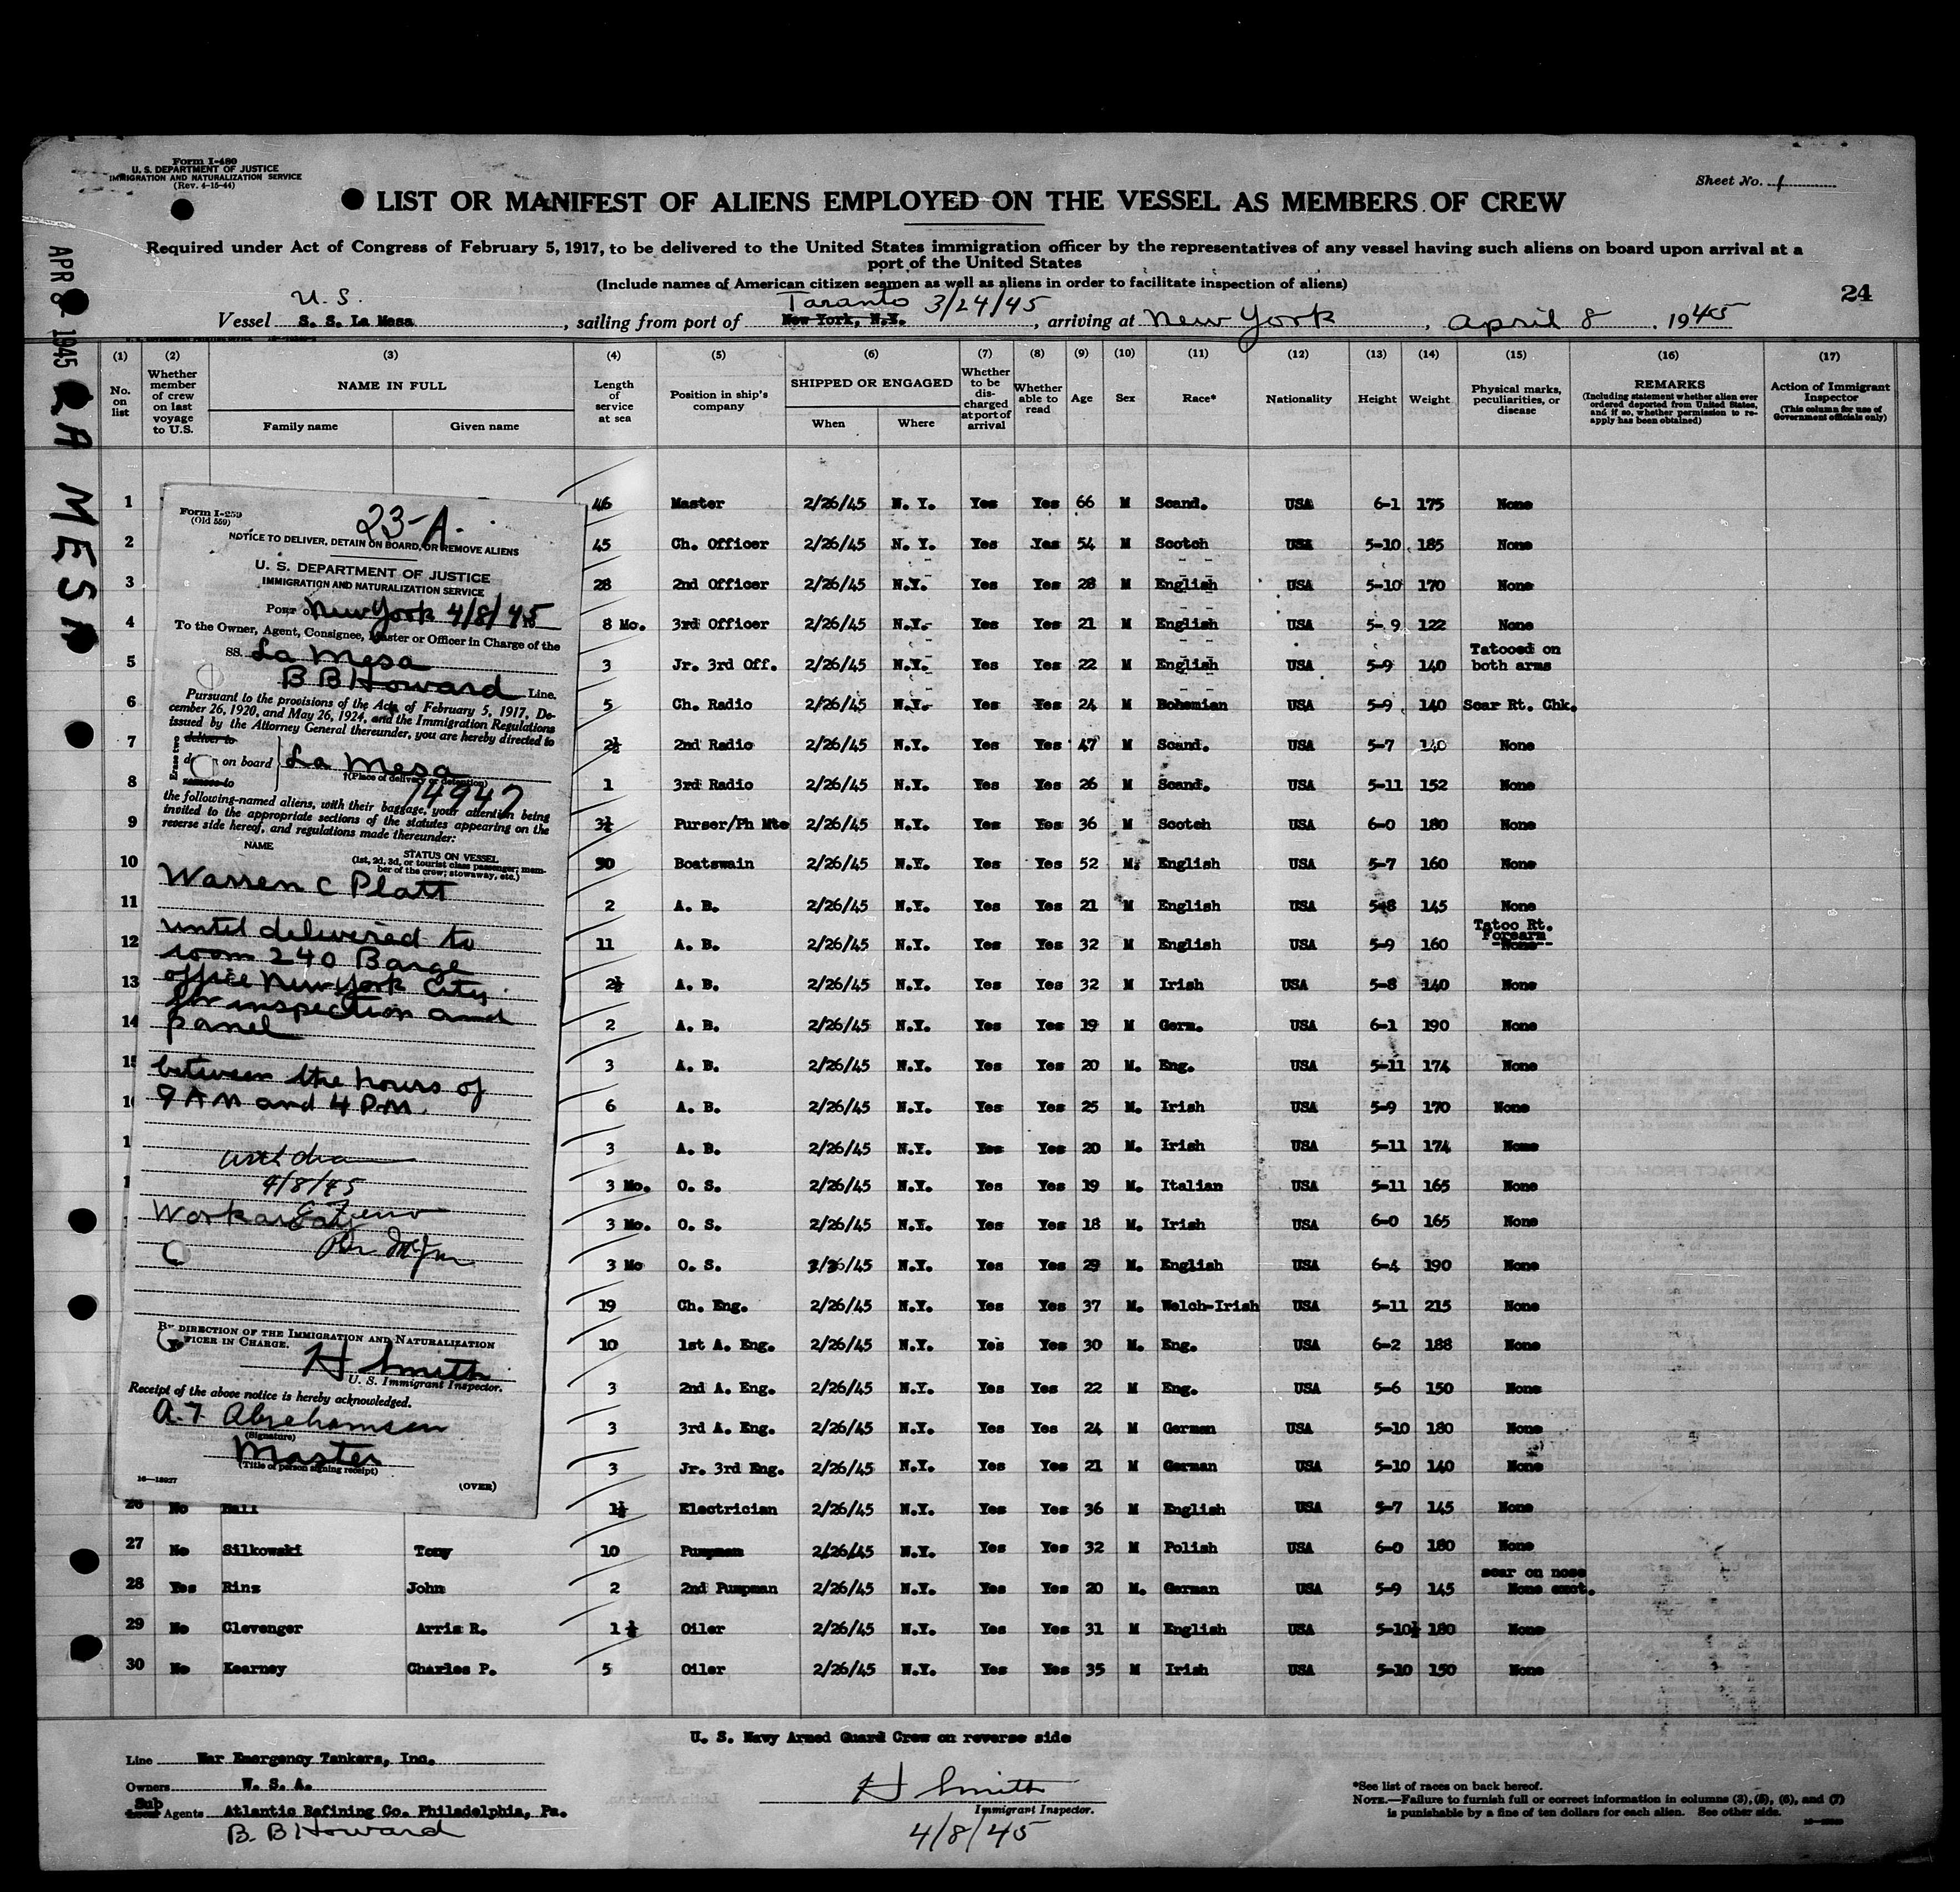 Form I-480
U. S. DEPARTMENT OF JUSTICE
IMMIGRATION AND NATURALIZATION SERVICE
(Rev. 4-15-44)
Sheet No. 1
LIST OR MANIFEST OF ALIENS EMPLOYED ON THE VESSEL AS MEMBERS OF CREW
Required under Act of Congress of February 5, 1917, to be delivered to the United States immigration officer by the representatives of any vessel having such aliens on board upon arrival at a
port of the United States
(Include names of American citizen seamen as well as aliens in order to facilitate inspection of aliens)
24
U. S. Taranto 3/24/45
Vessel S. S. La Mesa, sailing from port of New York, N.Y., arriving at New York, April 8, 1945
APR 8 1945 LA MESA
(1) (2) (3) (4) (5) (6) (7) (8) (9) (10) (11) (12) (13) (14) (15) (16) (17)
No. on list
Whether member of crew on last voyage to U.S.
NAME IN FULL
Family name Given name
Length of service at sea
Position in ship's company
SHIPPED OR ENGAGED
When Where
Whether to be discharged at port of arrival
Whether able to read
Age
Sex
Race*
Nationality
Height
Weight
Physical marks, peculiarities, or disease
REMARKS
(Including statement whether alien ever ordered deported from United States, and if so, whether permission to re-apply has been obtained)
Action of Immigrant Inspector
(This column for use of Government officials only)
1 46 Master 2/26/45 N. Y. Yes Yes 66 M Scand. USA 6-1 175 None
2 45 Ch. Officer 2/26/45 N. Y. Yes Yes 54 M Scotch USA 5-10 185 None
3 28 2nd Officer 2/26/45 N.Y. Yes Yes 28 M English USA 5-10 170 None
4 8 Mo. 3rd Officer 2/26/45 N.Y. Yes Yes 21 M English USA 5-9 122 None
5 3 Jr. 3rd Off. 2/26/45 N.Y. Yes Yes 22 M English USA 5-9 140 Tatooed on both arms
6 5 Ch. Radio 2/26/45 N.Y. Yes Yes 24 M Bohemian USA 5-9 140 Scar Rt. Chk.
7 2½ 2nd Radio 2/26/45 N.Y. Yes Yes 47 M Scand. USA 5-7 140 None
8 1 3rd Radio 2/26/45 N.Y. Yes Yes 26 M Scand. USA 5-11 152 None
9 3½ Purser/Ph Mte 2/26/45 N.Y. Yes Yes 36 M Scotch USA 6-0 180 None
10 30 Boatswain 2/26/45 N.Y. Yes Yes 52 M. English USA 5-7 160 None
11 2 A. B. 2/26/45 N.Y. Yes Yes 21 M English USA 5-8 145 None
12 11 A. B. 2/26/45 N.Y. Yes Yes 32 M English USA 5-9 160 Tatoo Rt. Forearm None
13 2½ A. B. 2/26/45 N.Y. Yes Yes 32 M Irish USA 5-8 140 None
14 2 A. B. 2/26/45 N.Y. Yes Yes 19 M Germ. USA 6-1 190 None
15 3 A. B. 2/26/45 N.Y. Yes Yes 20 M. Eng. USA 5-11 174 None
6 A. B. 2/26/45 N.Y. Yes Yes 25 M. Irish USA 5-9 170 None
3 A. B. 2/26/45 N.Y. Yes Yes 20 M. Irish USA 5-11 174 None
3 Mo. O. S. 2/26/45 N.Y. Yes Yes 19 M. Italian USA 5-11 165 None
3 Mo. O. S. 2/26/45 N.Y. Yes Yes 18 M. Irish USA 6-0 165 None
3 Mo O. S. 2/26/45 N.Y. Yes Yes 29 M. English USA 6-4 190 None
19 Ch. Eng. 2/26/45 N.Y. Yes Yes 37 M. Welch-Irish USA 5-11 215 None
10 1st A. Eng. 2/26/45 N.Y. Yes Yes 30 M. Eng. USA 6-2 188 None
3 2nd A. Eng. 2/26/45 N.Y. Yes Yes 22 M Eng. USA 5-6 150 None
3 3rd A. Eng. 2/26/45 N.Y. Yes Yes 24 M German USA 5-10 180 None
3 Jr. 3rd Eng. 2/26/45 N.Y. Yes Yes 21 M German USA 5-10 140 None
26 No Hall 1½ Electrician 2/26/45 N.Y. Yes Yes 36 M English USA 5-7 145 None
27 No Silkowski Tony 10 Pumpman 2/26/45 N.Y. Yes Yes 32 M Polish USA 6-0 180 None
28 Yes Rinz John 2 2nd Pumpman 2/26/45 N.Y. Yes Yes 20 M. German USA 5-9 145 scar on nose None
29 No Clevenger Arris R. 1 ½ Oiler 2/26/45 N.Y. Yes Yes 31 M English USA 5-10½ 180 None
30 No Kearney Charles P. 5 Oiler 2/26/45 N.Y. Yes Yes 35 M Irish USA 5-10 150 None
Form I-259
(Old 559)
23-A.
NOTICE TO DELIVER, DETAIN ON BOARD, OR REMOVE ALIENS
U. S. DEPARTMENT OF JUSTICE
IMMIGRATION AND NATURALIZATION SERVICE
Port of New York 4/8/45
To the Owner, Agent, Consignee, Master or Officer in Charge of the
SS. La Mesa
B B Howard Line.
Pursuant to the provisions of the Acts of February 5, 1917, De-
cember 26, 1920, and May 26, 1924, and the Immigration Regulations
issued by the Attorney General thereunder, you are hereby directed to
Erase two
deliver to
on board La Mesa
remove to
†(Place of delivery or detention)
14947
the following-named aliens, with their baggage, your attention being
invited to the appropriate sections of the statutes appearing on the
reverse side hereof, and regulations made thereunder:
NAME
STATUS ON VESSEL
(1st, 2d, 3d, or tourist class passenger; mem-
ber of the crew; stowaway, etc.)
Warren C Platt
until delivered to
room 240 Barge
office New York City
for inspection and
panel
between the hours of
9 AM and 4 PM.
4/8/45
By direction of the Immigration and Naturalization
Officer in Charge.
H Smith
U. S. Immigrant Inspector.
Receipt of the above notice is hereby acknowledged.
A.T. Abrahamsen
(Signature)
Master
(Title of person signing receipt)
16—18027
(OVER)
U. S. Navy Armed Guard Crew on reverse side
Line War Emergency Tankers, Inc.
Owners W. S. A.
Sub
Local Agents Atlantic Refining Co. Philadelphia, Pa.
B. B Howard
H Smith
Immigrant Inspector.
4/8/45
*See list of races on back hereof.
NOTE.—Failure to furnish full or correct information in columns (3), (5), (6), and (7)
is punishable by a fine of ten dollars for each alien. See other side.